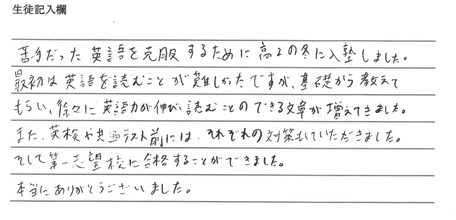 生徒記入欄
苦手だった英語を克服するために高2の冬に入塾しました。
最初は英語を読むことが難しかったですが、基礎から教えて
もらい、徐々に英語力が伸び読むことのできる文章が増えてきました。
また、英検や共通テスト前には、それぞれの対策もしていただきました。
そして第一志望校に合格することができました。
本当にありがとうございました。